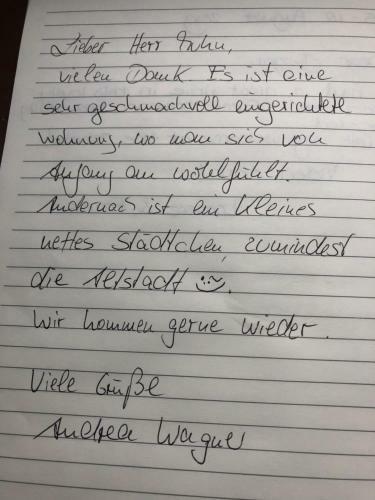 Lieber Herr
vielen Dank. Es ist eine
sehr geschmackvoll eingerichtete
Wohnung, wo man sich von
Anfang an wohlfühlt.
Andernach ist ein kleines
nettes Städtchen, zumindest
die Altstadt
Wir kommen gerne wieder.
Viele Grüße
Andrea Wagner